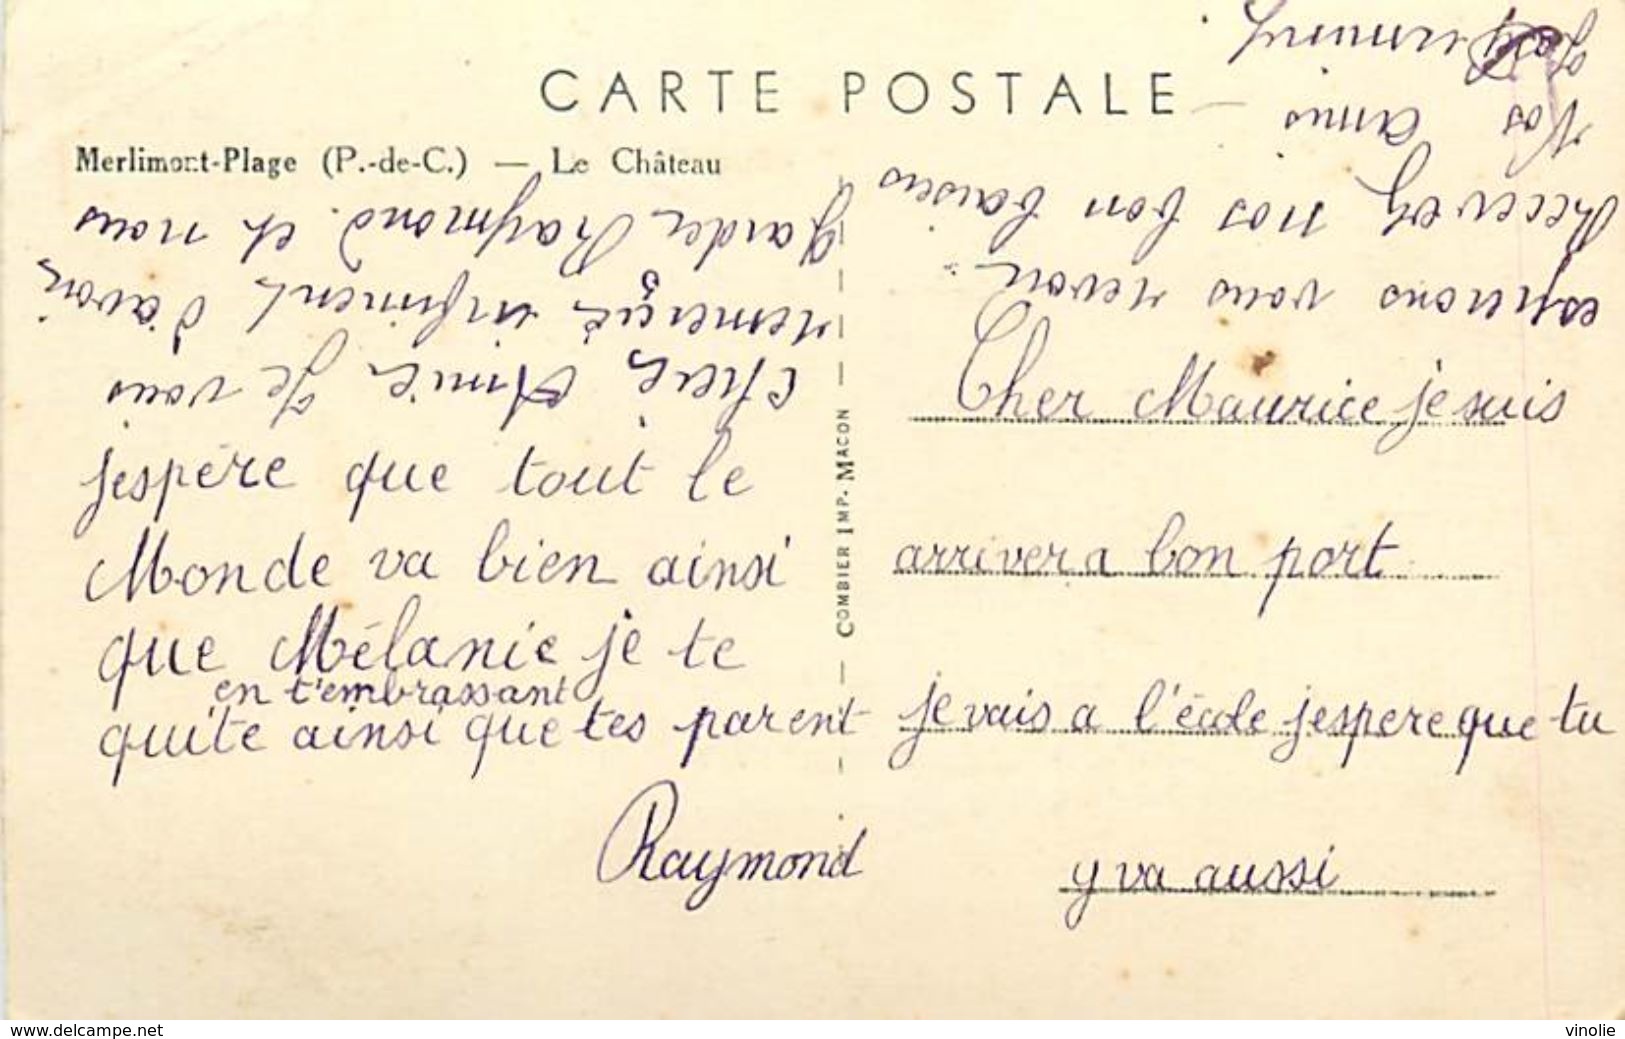 CARTE POSTALE
Merlimont-Plage (P.-de-C.) — Le Château
COMBIER IMP. MACON
Cher Maurice je suis
arriver a bon port
je vais a l'école jespere que tu
y va aussi
jespère que tout le
Monde va bien ainsi
que Mélanie je te
en t'embrassant
quite ainsi que tes parent
Raymond
Cheie Amie Je vous
remerçie infiniment d'avoir
garder Raymond et nous
esperons vous revoir
Recevez nos bon baisers
Vos amis
www.delcampe.net
vinolie